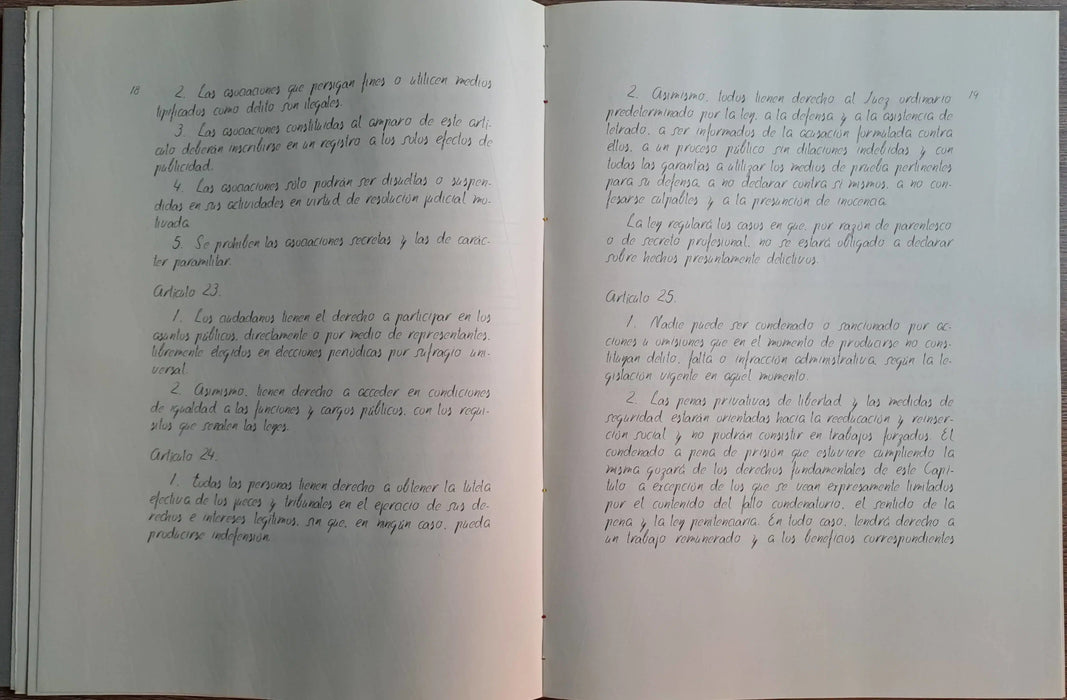 18
2. Las asociaciones que persigan fines o utilicen medios
tipificados como delito son ilegales.
3. Las asociaciones constituidas al amparo de este artí-
culo deberán inscribirse en un registro a los solos efectos de
publicidad.
4. Las asociaciones sólo podrán ser disueltas o suspen-
didas en sus actividades en virtud de resolución judicial mo-
tivada.
5. Se prohíben las asociaciones secretas y las de carác-
ter paramilitar.
Artículo 23.
1. Los ciudadanos tienen el derecho a participar en los
asuntos públicos, directamente o por medio de representantes,
libremente elegidos en elecciones periódicas por sufragio uni-
versal.
2. Asimismo, tienen derecho a acceder en condiciones
de igualdad a las funciones y cargos públicos, con los requi-
sitos que señalen las leyes.
Artículo 24.
1. Todas las personas tienen derecho a obtener la tutela
efectiva de los jueces y tribunales en el ejercicio de sus de-
rechos e intereses legítimos, sin que, en ningún caso, pueda
producirse indefensión.
19
2. Asimismo, todos tienen derecho al Juez ordinario
predeterminado por la ley, a la defensa y a la asistencia de
letrado, a ser informados de la acusación formulada contra
ellos, a un proceso público sin dilaciones indebidas y con
todas las garantías a utilizar los medios de prueba pertinentes
para su defensa, a no declarar contra sí mismos, a no con-
fesarse culpables y a la presunción de inocencia.
La ley regulará los casos en que, por razón de parentesco
o de secreto profesional, no se estará obligado a declarar
sobre hechos presuntamente delictivos.
Artículo 25.
1. Nadie puede ser condenado o sancionado por ac-
ciones u omisiones que en el momento de producirse no cons-
tituyan delito, falta o infracción administrativa, según la le-
gislación vigente en aquel momento.
2. Las penas privativas de libertad y las medidas de
seguridad estarán orientadas hacia la reeducación y reinser-
ción social y no podrán consistir en trabajos forzados. El
condenado a pena de prisión que estuviere cumpliendo la
misma gozará de los derechos fundamentales de este Capí-
tulo a excepción de los que se vean expresamente limitados
por el contenido del fallo condenatorio, el sentido de la
pena y la ley penitenciaria. En todo caso, tendrá derecho a
un trabajo remunerado y a los beneficios correspondientes